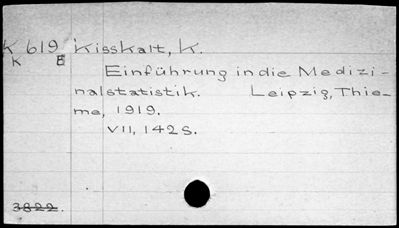 K 619 Kisskalt, K.
K E
Einführung in die Medizi-
nalstatistik. Leipzig, Thie-
me, 1919.
VII, 142 S.
3822.